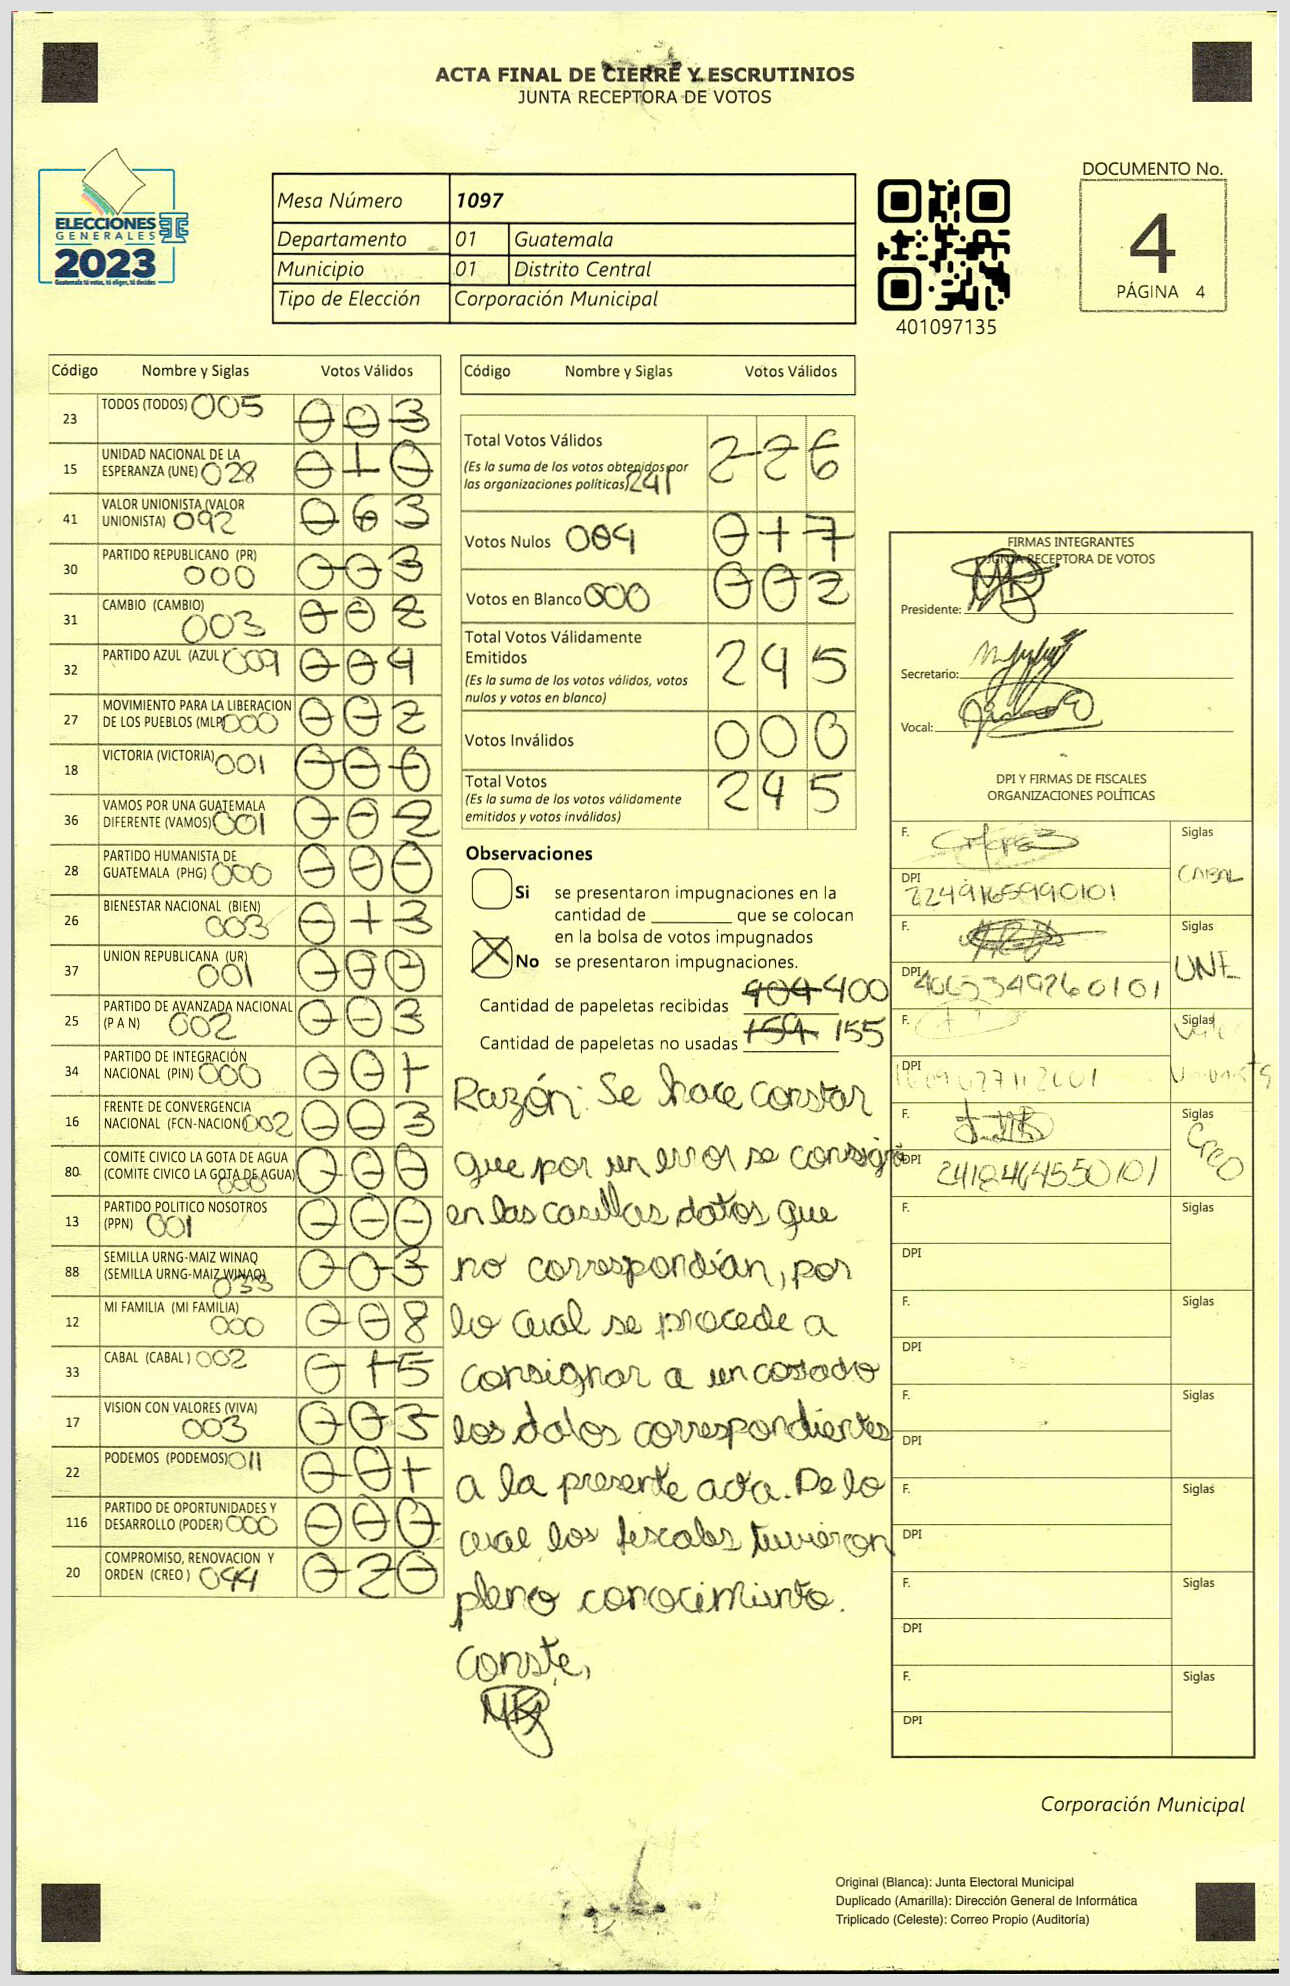 ACTA FINAL DE CIERRE Y ESCRUTINIOS
JUNTA RECEPTORA DE VOTOS
ELECCIONES
GENERALES
2023
Guatemala tú votas, tú eliges, tú decides
Mesa Número 1097
Departamento 01 Guatemala
Municipio 01 Distrito Central
Tipo de Elección Corporación Municipal
401097135
DOCUMENTO No.
4
PÁGINA 4
Código Nombre y Siglas Votos Válidos
23 TODOS (TODOS) 005 0 0 3
15 UNIDAD NACIONAL DE LA
ESPERANZA (UNE) 028 0 1 0
41 VALOR UNIONISTA (VALOR
UNIONISTA) 092 0 6 3
30 PARTIDO REPUBLICANO (PR)
000 0 0 3
31 CAMBIO (CAMBIO)
003 0 0 2
32 PARTIDO AZUL (AZUL) 009 0 0 4
27 MOVIMIENTO PARA LA LIBERACION
DE LOS PUEBLOS (MLP) 000 0 0 2
18 VICTORIA (VICTORIA) 001 0 0 0
36 VAMOS POR UNA GUATEMALA
DIFERENTE (VAMOS) 001 0 0 2
28 PARTIDO HUMANISTA DE
GUATEMALA (PHG) 000 0 0 0
26 BIENESTAR NACIONAL (BIEN)
003 0 1 3
37 UNION REPUBLICANA (UR)
001 0 0 0
25 PARTIDO DE AVANZADA NACIONAL
(P A N) 002 0 0 3
34 PARTIDO DE INTEGRACIÓN
NACIONAL (PIN) 000 0 0 1
16 FRENTE DE CONVERGENCIA
NACIONAL (FCN-NACION) 002 0 0 3
80 COMITE CIVICO LA GOTA DE AGUA
(COMITE CIVICO LA GOTA DE AGUA) 000 0 0 0
13 PARTIDO POLITICO NOSOTROS
(PPN) 001 0 0 0
88 SEMILLA URNG-MAIZ WINAQ
(SEMILLA URNG-MAIZ WINAQ) 033 0 0 3
12 MI FAMILIA (MI FAMILIA)
000 0 0 8
33 CABAL (CABAL) 002 0 1 5
17 VISION CON VALORES (VIVA)
003 0 0 3
22 PODEMOS (PODEMOS) 011 0 0 1
116 PARTIDO DE OPORTUNIDADES Y
DESARROLLO (PODER) 000 0 0 0
20 COMPROMISO, RENOVACION Y
ORDEN (CREO) 044 0 2 0
Código Nombre y Siglas Votos Válidos
Total Votos Válidos 2 2 6
(Es la suma de los votos obtenidos por
las organizaciones políticas) 241
Votos Nulos 004 0 1 7
Votos en Blanco 000 0 0 2
Total Votos Válidamente
Emitidos 2 4 5
(Es la suma de los votos válidos, votos
nulos y votos en blanco)
Votos Inválidos 0 0 0
Total Votos 2 4 5
(Es la suma de los votos válidamente
emitidos y votos inválidos)
Observaciones
Si se presentaron impugnaciones en la
cantidad de ________ que se colocan
en la bolsa de votos impugnados
No se presentaron impugnaciones.
Cantidad de papeletas recibidas 404 400
Cantidad de papeletas no usadas 159 155
Razón: Se hace constar
que por un error se consignó
en las casillas datos que
no correspondían, por
lo cual se procede a
consignar a un costado
los datos correspondientes
a la presente acta. De lo
cual los fiscales tuvieron
pleno conocimiento.
Conste,
FIRMAS INTEGRANTES
JUNTA RECEPTORA DE VOTOS
Presidente:
Secretario:
Vocal:
DPI Y FIRMAS DE FISCALES
ORGANIZACIONES POLÍTICAS
F. Siglas
DPI 2249165990101 CABAL
F. Siglas
DPI UNE
F. Siglas
DPI
F. Siglas
DPI 2418464550101 Creo
F. Siglas
DPI
F. Siglas
DPI
F. Siglas
DPI
F. Siglas
DPI
F. Siglas
DPI
F. Siglas
DPI
Corporación Municipal
Original (Blanca): Junta Electoral Municipal
Duplicado (Amarilla): Dirección General de Informática
Triplicado (Celeste): Correo Propio (Auditoría)